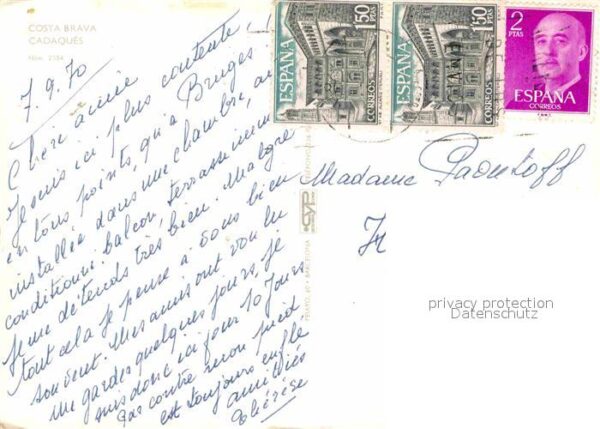 COSTA BRAVA
CADAQUÉS
Núm. 2184
7.9.70
Chère amie
Je suis ici plus contente,
en tous points, qu'à Bruges!
installée dans une chambre, air
conditionné, balcon, terrasse immense
Je me détends très bien. Malgré
tout cela je pense à vous bien
souvent. Mes amis ont voulu
me garder quelques jours, je
suis donc ici pour 10 jours
Par contre mon pied
est toujours enflé
amitiés
Thérèse
ESPAÑA
1'50 PTAS
CORREOS
ESPAÑA
1'50 PTAS
CORREOS
2
PTAS
ESPAÑA
CORREOS
Madame Paontoff
privacy protection
Datenschutz